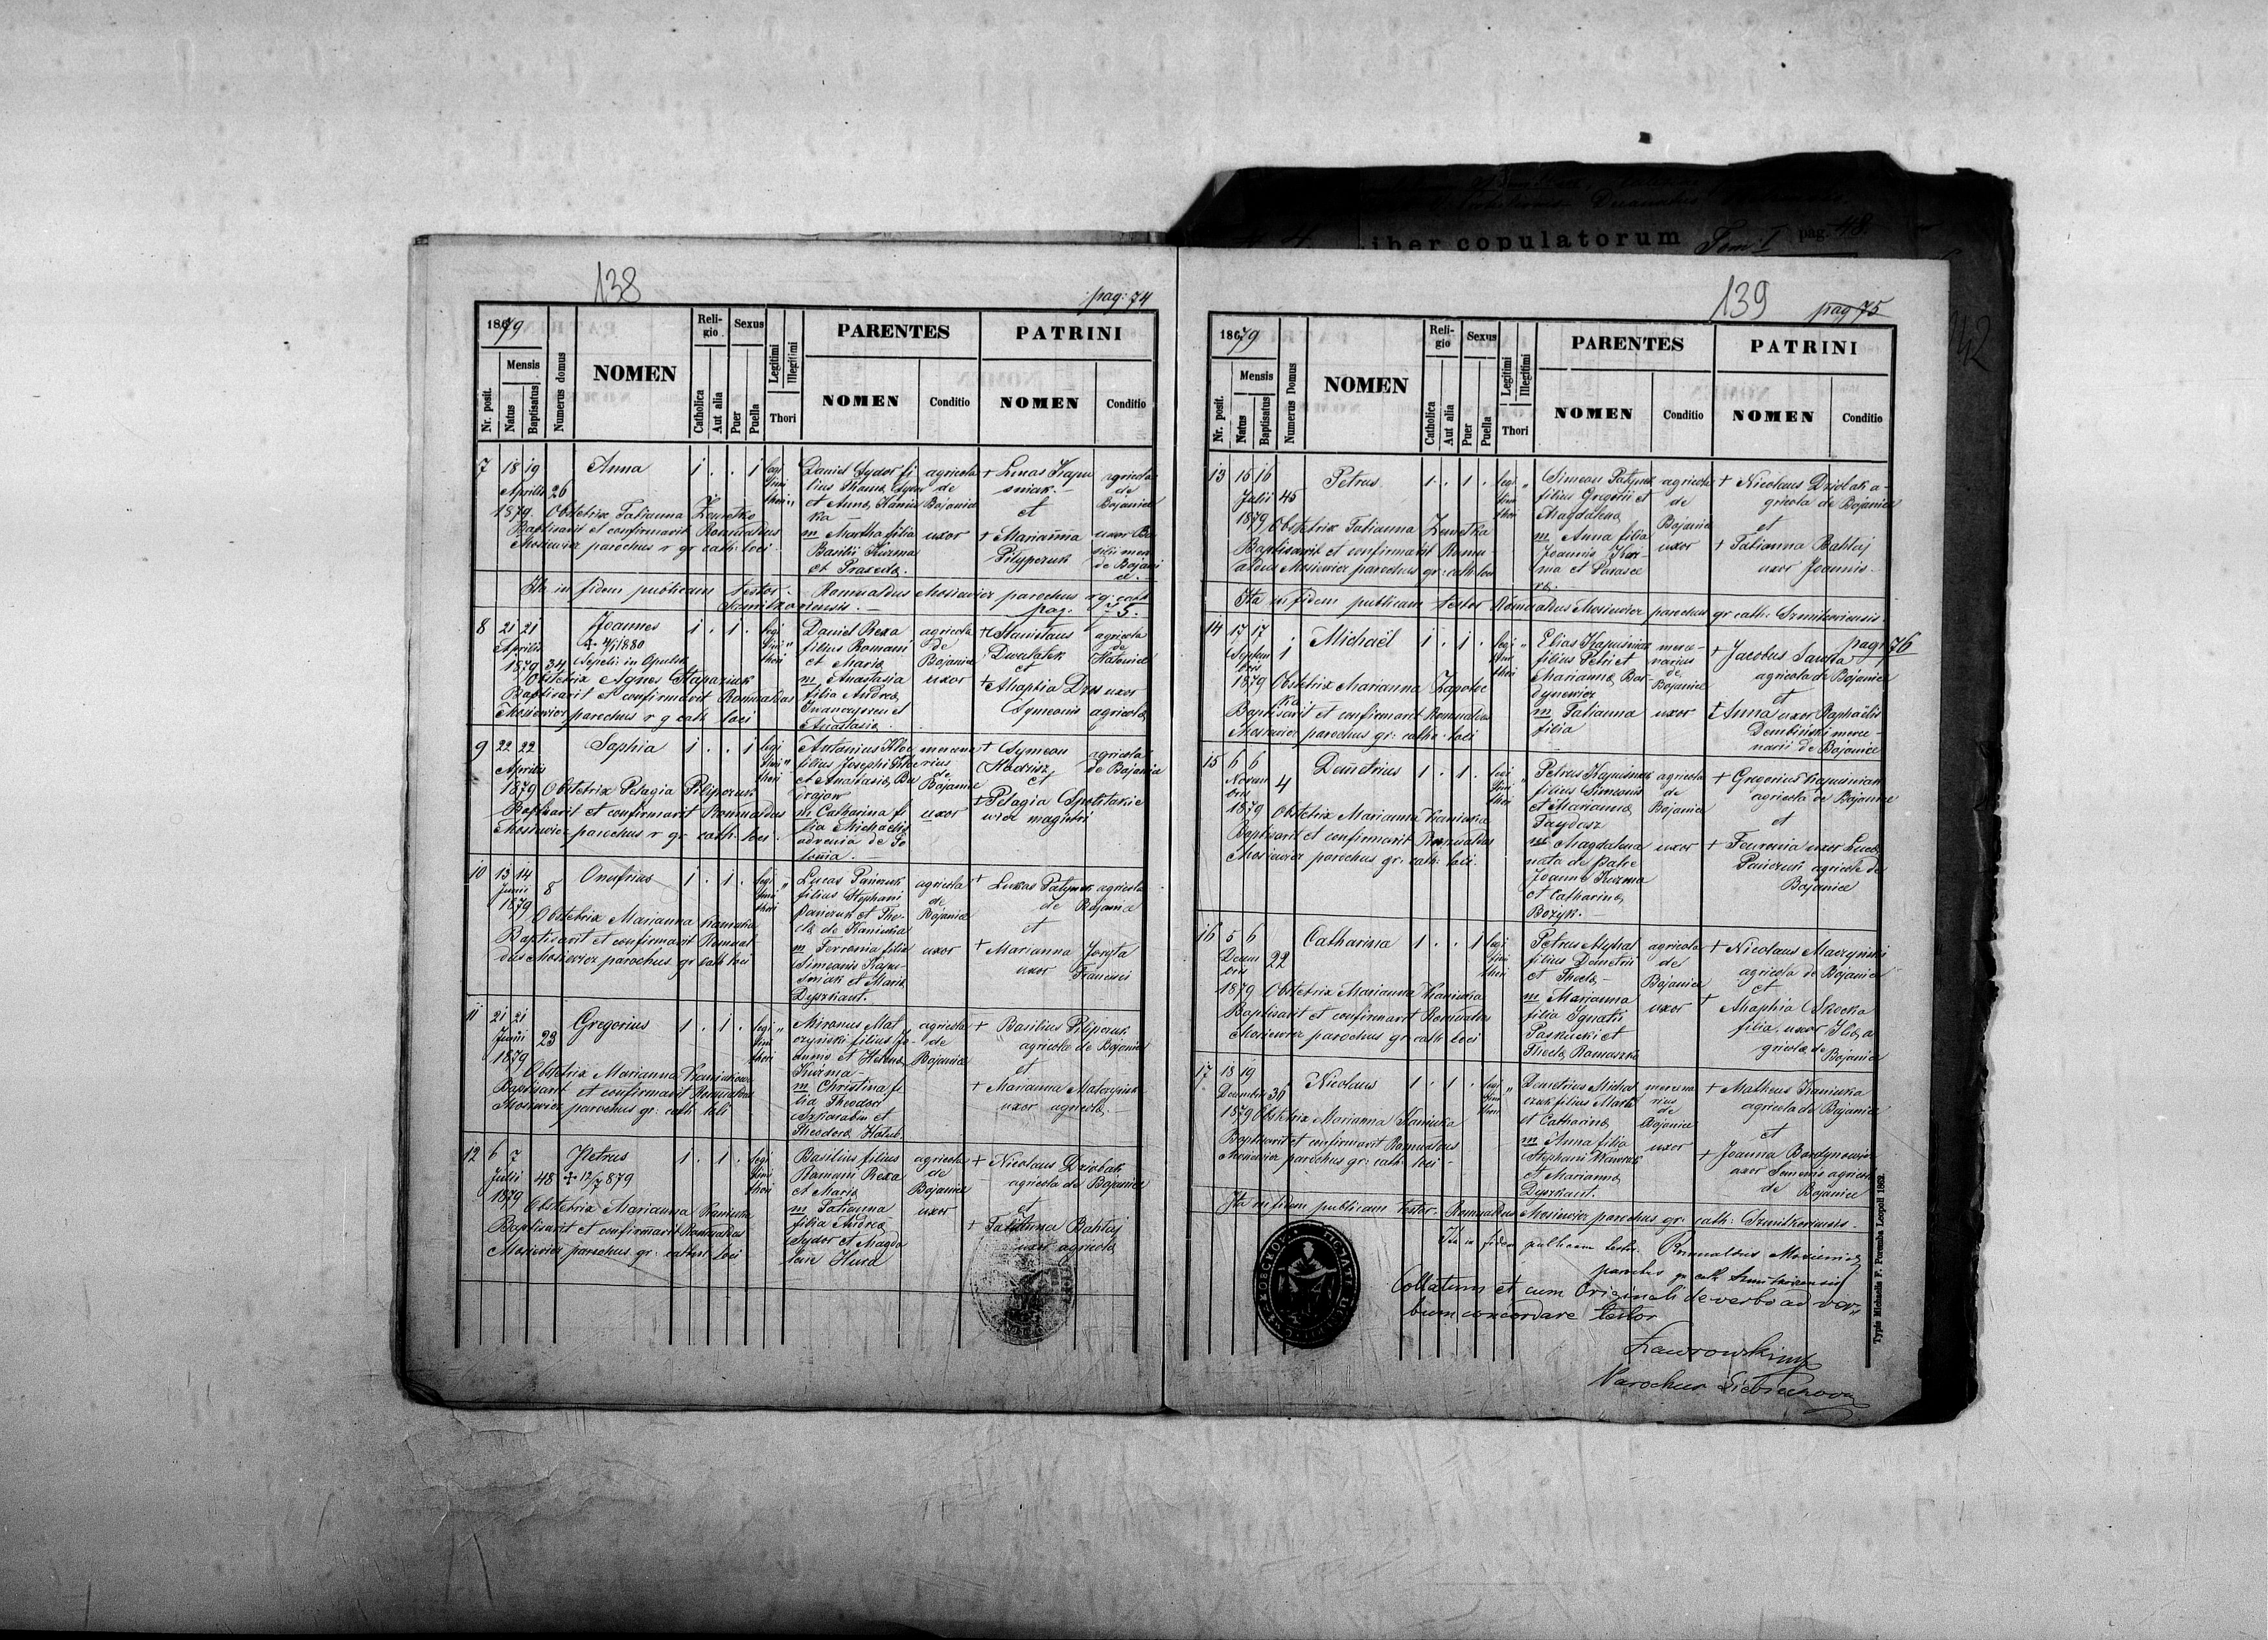 Liber copulatorum Tom: I pag. 48.
138
pag: 74
1879
Mensis
Nr. posit.
Natus
Baptisatus
Numerus domus
NOMEN
Religio
Catholica
Aut alia
Sexus
Puer
Puella
Legitimi
Illegitimi
Thori
PARENTES
NOMEN
Conditio
PATRINI
NOMEN
Conditio
7 18 19 Anna 1 . . 1 legi
timi
thori "
Aprilis 26
1879. Obstetrix Tatianna Zewetko
Baptisavit et confirmavit Romualdus
Mosiewicz parochus r gr cath: loci
Daniel Sydor fi
lius Thoma Sydor
et Anna Kaniu
ka
m Martha filia
Basilii Kuzma
et Praxeda.
agricola
de
Bojanice
uxor
+ Lucas Kapu
sniak.
et
+ Marianna
Pilypczuk
agricola
de
Bojanice
uxor Ba
silii
de Bojani
ce.
Ita in fidem publicam testor. Romualdus Mosiewicz parochus rg: cath
Szmitkoviensis.
pag. 75.
8 21 21 Joannes 1 . 1 . legi
timi "
thori
Aprilis
1879 34
1880
Obstetrix Agnes Stapaniuk
Baptisavit et confirmavit Romualdus
Mosiewicz parochus r g cath loci
Daniel Rexa
filius Romani
et Maria
m Anastasia
filia Andrea
et
Anastasia.
agricola
de
Bojanice
uxor
+ Stanislaus
et
+ Ahaphia Dzus uxor
Symeonis agricola
agricola
de
9 22 22 Sophia 1 . . 1 legi
timi "
thori
Aprilis
1879 Obstetrix Pelagia Pilipczuk
Baptisavit et confirmavit Romualdus
Mosiewicz parochus r gr: cath: loci.
Antonius
filius Josephi
et Anastasia Bu
drajow
m Catharina fi
lia Michaelis
advenia de
mercena
rius
de
Bojanice
uxor
+ Symeon
et
+ Pelagia
magistri
agricola
de Bojanice
10 13 14 Onufrius 1 . 1 . legi "
timi
thori
Junii 8
1879
Obstetrix Marianna Kaniuka
Baptisavit et confirmavit Romual
dus Mosiewicz parochus gr cath loci
Lucas Pańczuk
filius Stephani
Pańczuk et The-
cla de Kaniuka
m Fevronia filia
Simeonis Kapu-
sniak et Maria
Dyszkant.
agricola
de
Bojanice
uxor
+ Lukas Patynok agricola
de Bojanice
et
+ Marianna
uxor Francisci
11 21 21 Gregorius 1 . 1 . legi "
timi
thori
Junii 23
1879
Obstetrix Marianna
Baptisavit et confirmavit Romualdus
Mosiewicz parochus gr: cath: loci
Mironus Mat
czynski filius Jo-
annis et Helena
Kuzma
m Christina fi
lia Theodori
et
Theodora Holub
agricola
de
Bojanice
+ Basilius Pilipczuk
agricola de Bojanice
et
+ Marianna
uxor agricola
12 6 7 Petrus 1 . 1 . legi
timi
thori
Julii 48 + 12/7 879
1879
Obstetrix Marianna Kaniuka
Baptisavit et confirmavit Romualdus
Mosiewicz parochus gr: cathol loci
Basilius filius
Romani Rexa
et Maria
m Tatianna
filia Andrea
Sydor et Magda
lena Hura
agricola
de
Bojanice
uxor
+ Nicolaus Dziobak
agricola de Bojanice
et
+ Tatianna Bahlaj
uxor agricola
139
pag 75
1879
Mensis
Nr. posit.
Natus
Baptisatus
Numerus Domus
NOMEN
Religio
Catholica
Aut alia
Sexus
Puer
Puella
Legitimi
Illegitimi
Thori
PARENTES
NOMEN
Conditio
PATRINI
NOMEN
Conditio
13 15 16 Petrus 1 . 1 . legi "
timi
thori
Julii 45
1879 Obstetrix Tatianna Zewetka
Baptisavit et confirmavit Romu-
aldus Mosiewicz parochus gr: cath: loci
Simeon Patynok
filius Gregorii et
Magdalena
m Anna filia
Joannis Kuz-
ma et Parasce
va.
agricola
de
Bojanice
uxor
+ Nicolaus Dziobak a-
gricola de Bojanice
et
+ Tatianna Bahlaj
uxor Joannis
Ita in fidem publicam testor Romualdus Mosiewicz parochus gr cath: Szmitkoviensis
pag: 76
14 17 17 Michaël 1 . 1 . legi "
timi
thori
Septem 1
bris
1879 Obstetrix Marianna
Baptisavit et confirmavit Romualdus
Mosiewicz parochus gr: cath: loci
Elias Kapusniak
filius Petri et
Marianna Bor-
dynewicz
m Tatianna
filia
merce-
narius
de
Bojanice
uxor
+ Jacobus
agricola de Bojanice
et
+ Anna uxor Raphaëlis
Dembiński merce-
narii de Bojanice
15 6 6 Demetrius 1 . 1 . legi "
timi
thori
Novem 4
bris
1879 Obstetrix Marianna Kaniuka
Baptisavit et confirmavit Romualdus
Mosiewicz parochus gr: cath: loci.
Petrus Kapusniak
filius Simeonis
et Marianna
Faydasz
m Magdalena
nata de patre
Joanne Kuzma
et Catharina
Bozyk.
agricola
de
Bojanice
uxor
+ Gregorius Kapusniak
agricola de Bojanice
et
+ Fevronia uxor Luca
Pańczuk agricola de
Bojanice
16 5 6 Catharina 1 . . 1 legi
timi
thori
Decem 22
bris
1879 Obstetrix Marianna Kaniuka
Baptisavit et confirmavit Romualdus
Mosiewicz parochus gr cath: loci
Petrus Myhal
filius Demetrii
et Thecla
m Marianna
filia Ignatii
Paskucki et
Thecla Romaszko
agricola
de
Bojanice
uxor
+ Nicolaus Maczynski
agricola de Bojanice
et
+ Ahaphia Skocka
filia, uxor Ilia, a
gricola de Bojanice
17 18 19 Nicolaus 1 . 1 . legi "
timi
thori
Decembris 36
1879 Obstetrix Marianna Kaniuka
Baptisavit et confirmavit Romualdus
Mosiewicz parochus gr: cath: loci
Demetrius Michal
czuk filius Marki
et Catharina
m Anna filia
Stephani
et Marianna
Dyszkant.
mercena
rius
de
Bojanice
uxor
+ Matheus Kaniuka
agricola de Bojanice
et
+ Joanna Bordynowicz
uxor Simeonis agricola
de Bojanice
Ita in fidem publicam testor. Romualdus Mosiewicz parochus gr: cath: Szmitkoviensis.
Ita in fidem publicam testor. Romualdus Mosiewicz
parochus gr cath Szmitkoviensis
Collatum et cum Originali de verbo ad ver-
bum concordare testor
Ławrowski mp
Parochus
Typis Michaelis F. Poremba Leopoli 1862.
142